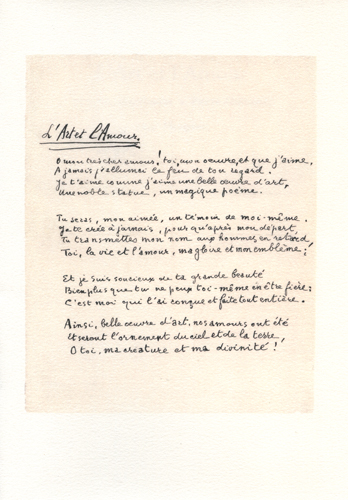 L'Art et l'Amour.
O mon très cher amour ! toi, mon œuvre, et que j'aime,
A jamais j'allumai le feu de ton regard.
Je t'aime comme j'aime une belle œuvre d'art,
Une noble statue, un magique poème.
Tu seras, mon aimée, un témoin de moi-même.
Je te crée à jamais, pour qu'après mon départ
Tu transmettes mon nom aux hommes en retard,
Toi, la vie et l'amour, ma gloire et mon emblème ;
Et je suis soucieux de ta grande beauté
Bien plus que tu ne peux toi-même en être fière :
C'est moi qui l'ai conçue et faite tout entière.
Ainsi, belle œuvre d'art, nos amours ont été
Et seront l'ornement du ciel et de la terre,
O toi, ma créature et ma divinité !